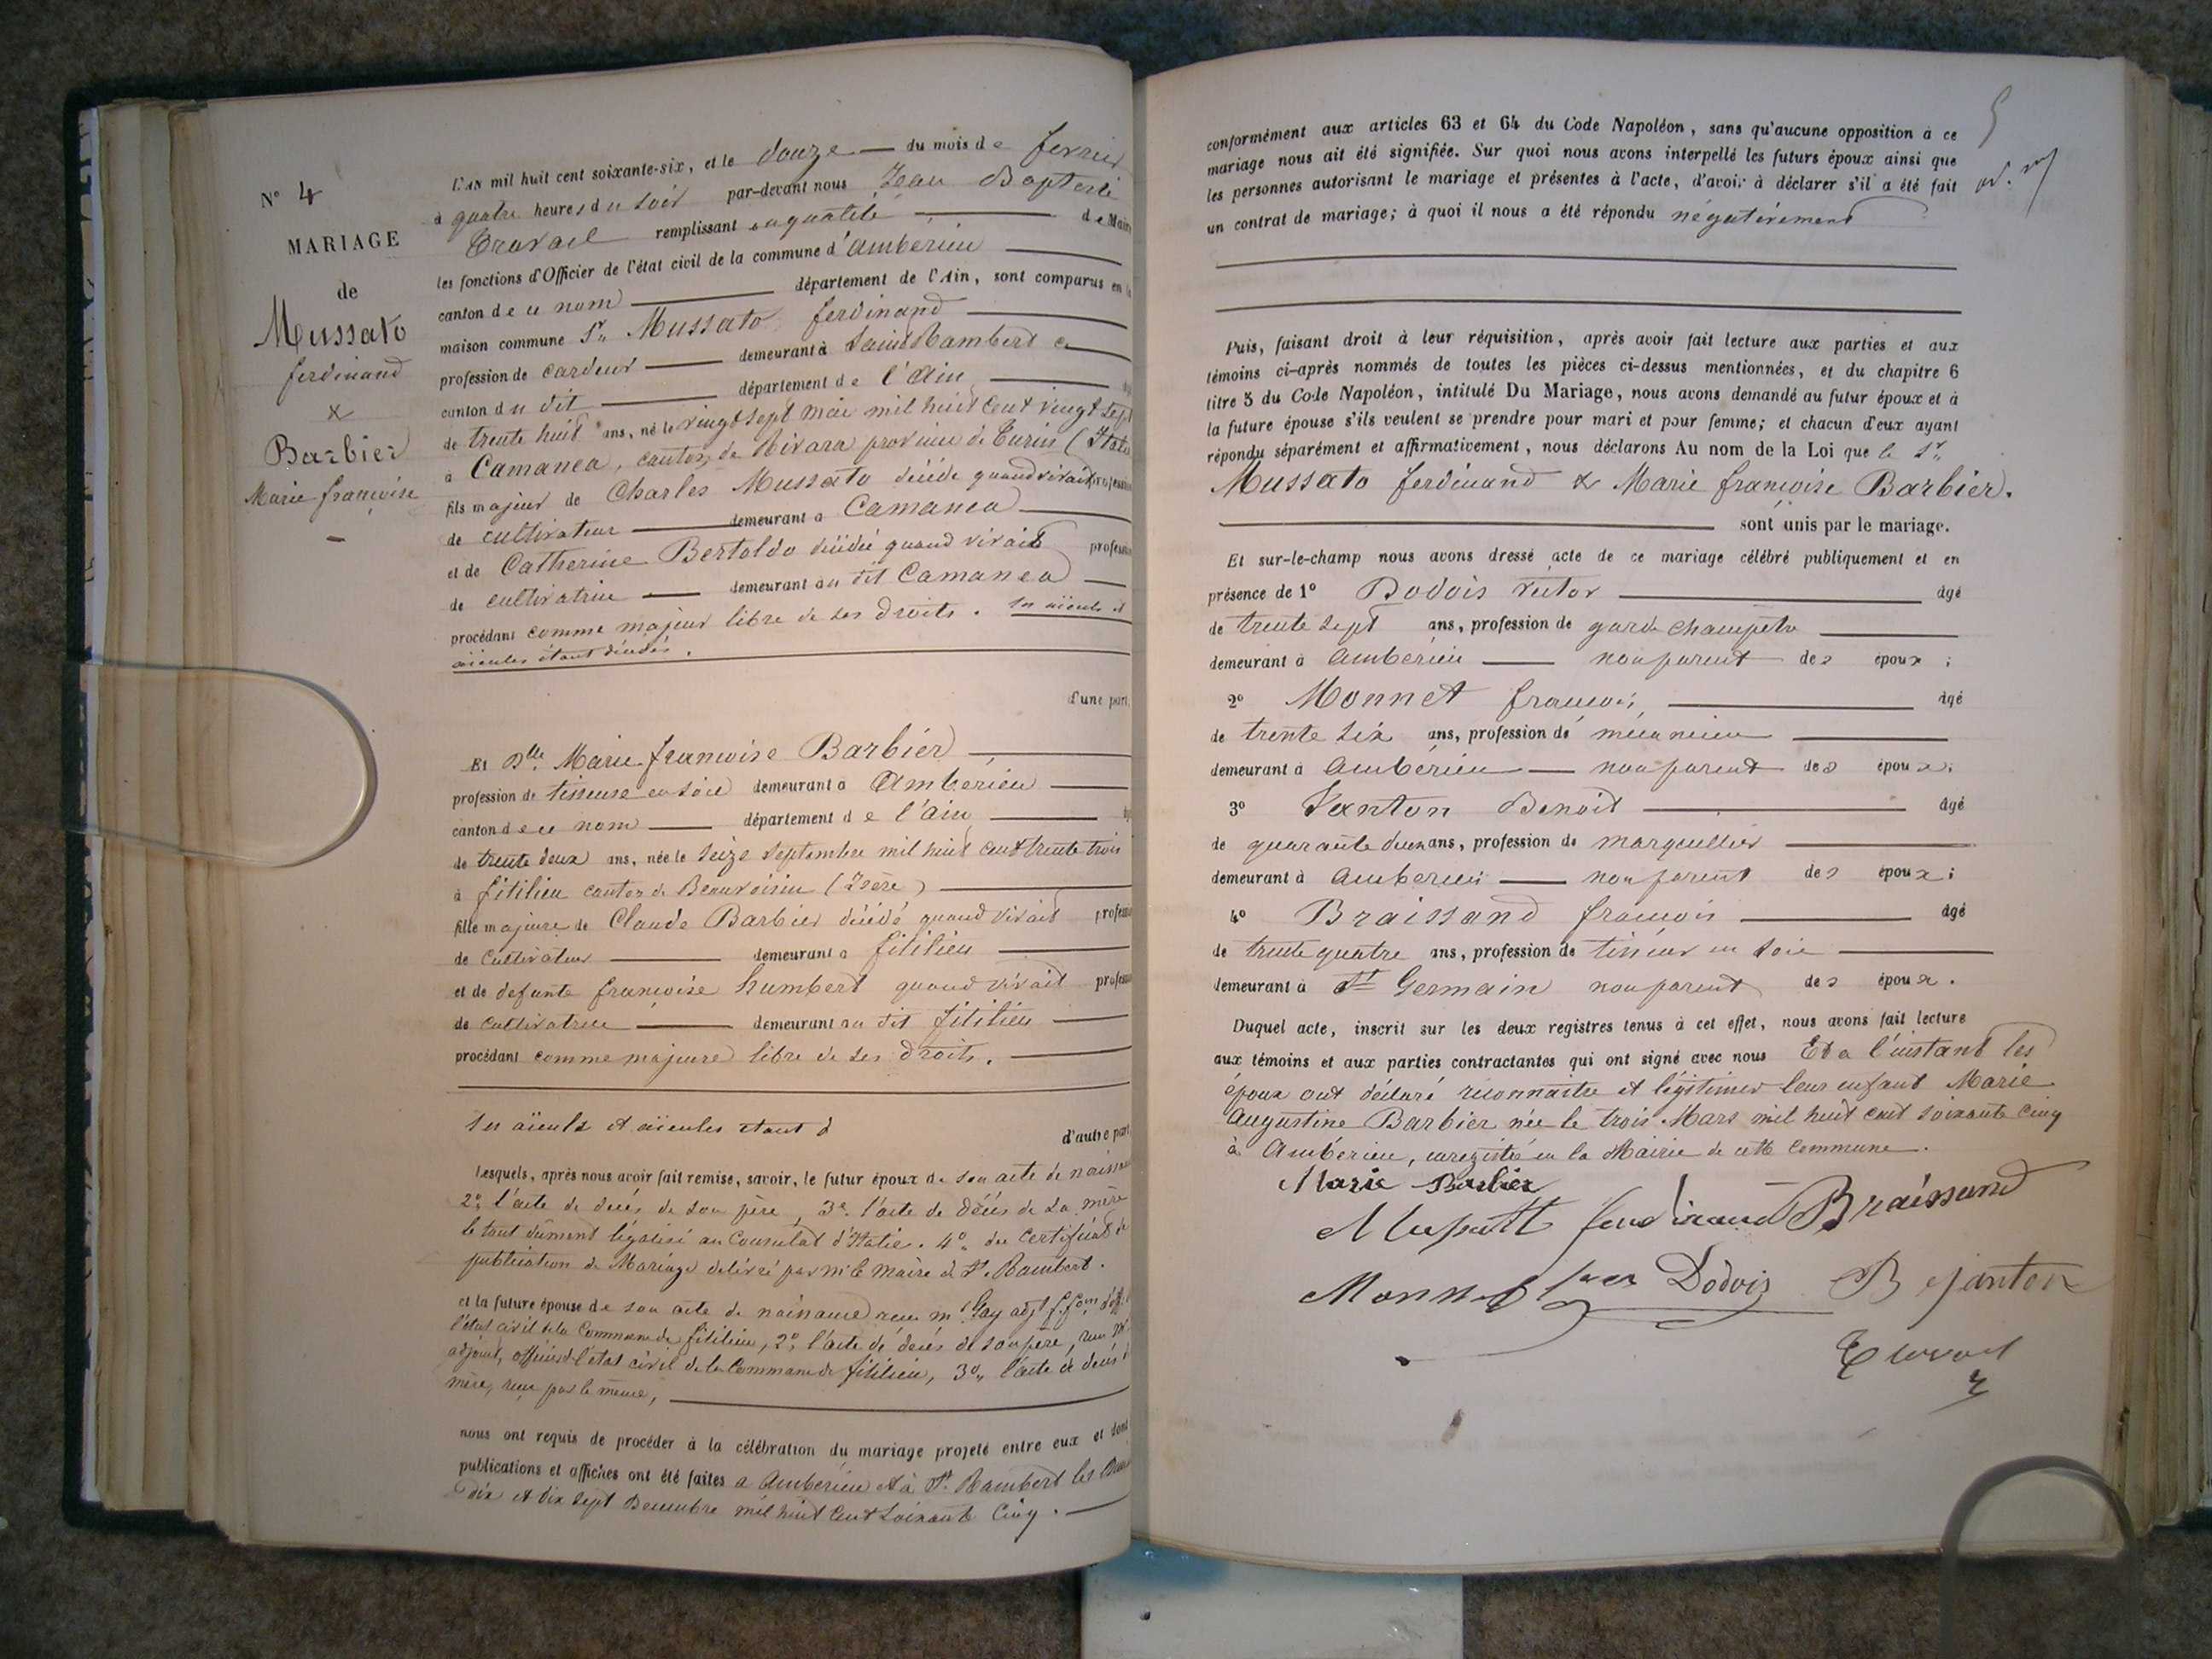 N° 4
MARIAGE
de
Mussato
ferdinand
&
Barbier
Marie françoise
L'AN mil huit cent soixante-six, et le douze du mois de fevrier
à quatre heures du soir par-devant nous Jean Baptiste
Travail remplissant en qualité de Maire
les fonctions d'Officier de l'état civil de la commune d'ambérieu
canton de ce nom département de l'Ain, sont comparus en la
maison commune Sr. Mussato ferdinand
profession de cardeur demeurant à Saint Rambert
canton du dit département de l'Ain
de trente huit ans, né le vingt sept mai mil huit cent vingt sept
à Camanea, canton de Rivara province de Turin (Italie
fils majeur de Charles Mussato décédé quand vivait profession
de cultivateur demeurant a Camanea
et de Catherine Bertoldo décédée quand vivait profession
de cultivatrice demeurant au dit Camanea
procédant comme majeur libre de ses droits. ses aieuls et
aieules étant décédés.
d'une part,
Et Dlle. Marie françoise Barbier
profession de tisseuse en soie demeurant à Ambérieu
canton de ce nom département de l'ain
de trente deux ans, née le seize septembre mil huit cent trente trois
à fitilieu canton de Beauvoisin (Isère)
fille majeure de Claude Barbier décédé quand vivait profession
de cultivateur demeurant a fitilieu
et de defunte françoise humbert quand vivait profession
de cultivatrice demeurant au dit fitilieu
procédant comme majeure libre de ses droits.
ses aieuls et aieules étant d d'autre part
Lesquels, après nous avoir fait remise, savoir, le futur époux de son acte de naissance
2° l'acte de decés de son père, 3° l'acte de décés de sa mère
le tout dûment légalisé au Consulat d'Italie. 4° du certificat de
publication de Mariage délivré par mr le maire de St. Rambert.
et la future épouse de son acte de naissance reçu mr Gay adjt
l'état civil de la Commune de fitilieu, 2° l'acte de décés de son père, reçu
adjoint, officier de l'état civil de la Commune de fitilieu, 3° l'acte de décés
mère, reçu par le même,
nous ont requis de procéder à la célébration du mariage projeté entre eux et dont
publications et affiches ont été faites a Ambérieu et à St. Rambert les
dix et dix sept Decembre mil huit cent soixante cinq.
5
conformément aux articles 63 et 64 du Code Napoléon, sans qu'aucune opposition à ce
mariage nous ait été signifiée. Sur quoi nous avons interpellé les futurs époux ainsi que
les personnes autorisant le mariage et présentes à l'acte, d'avoir à déclarer s'il a été fait
un contrat de mariage; à quoi il nous a été répondu négativement
Puis, faisant droit à leur réquisition, après avoir fait lecture aux parties et aux
témoins ci-après nommés de toutes les pièces ci-dessus mentionnées, et du chapitre 6
titre 5 du Code Napoléon, intitulé Du Mariage, nous avons demandé au futur époux et à
la future épouse s'ils veulent se prendre pour mari et pour femme; et chacun d'eux ayant
répondu séparément et affirmativement, nous déclarons Au nom de la Loi que le Sr.
Mussato ferdinand & Marie françoise Barbier.
sont unis par le mariage.
Et sur-le-champ nous avons dressé acte de ce mariage célébré publiquement et en
présence de 1° Dodois victor âgé
de trente sept ans, profession de garde champêtre
demeurant à Ambérieu non parent des époux;
2° Monnet françois âgé
de trente six ans, profession de mécanicien
demeurant à Ambérieu non parent des époux;
3° Janton Benoit âgé
de quarante deux ans, profession de marguillier
demeurant à Ambérieu non parent des époux;
4° Braissand françois âgé
de trente quatre ans, profession de tisseur en soie
demeurant à St Germain non parent des époux.
Duquel acte, inscrit sur les deux registres tenus à cet effet, nous avons fait lecture
aux témoins et aux parties contractantes qui ont signé avec nous Et a l'instant les
époux ont déclaré reconnaitre et légitimer leur enfant Marie
Augustine Barbier née le trois Mars mil huit cent soixante cinq
à Ambérieu, enregistré en la Mairie de cette Commune.
Marie Barbier
ferdinand Braissand
Monnet Dodois B Janton